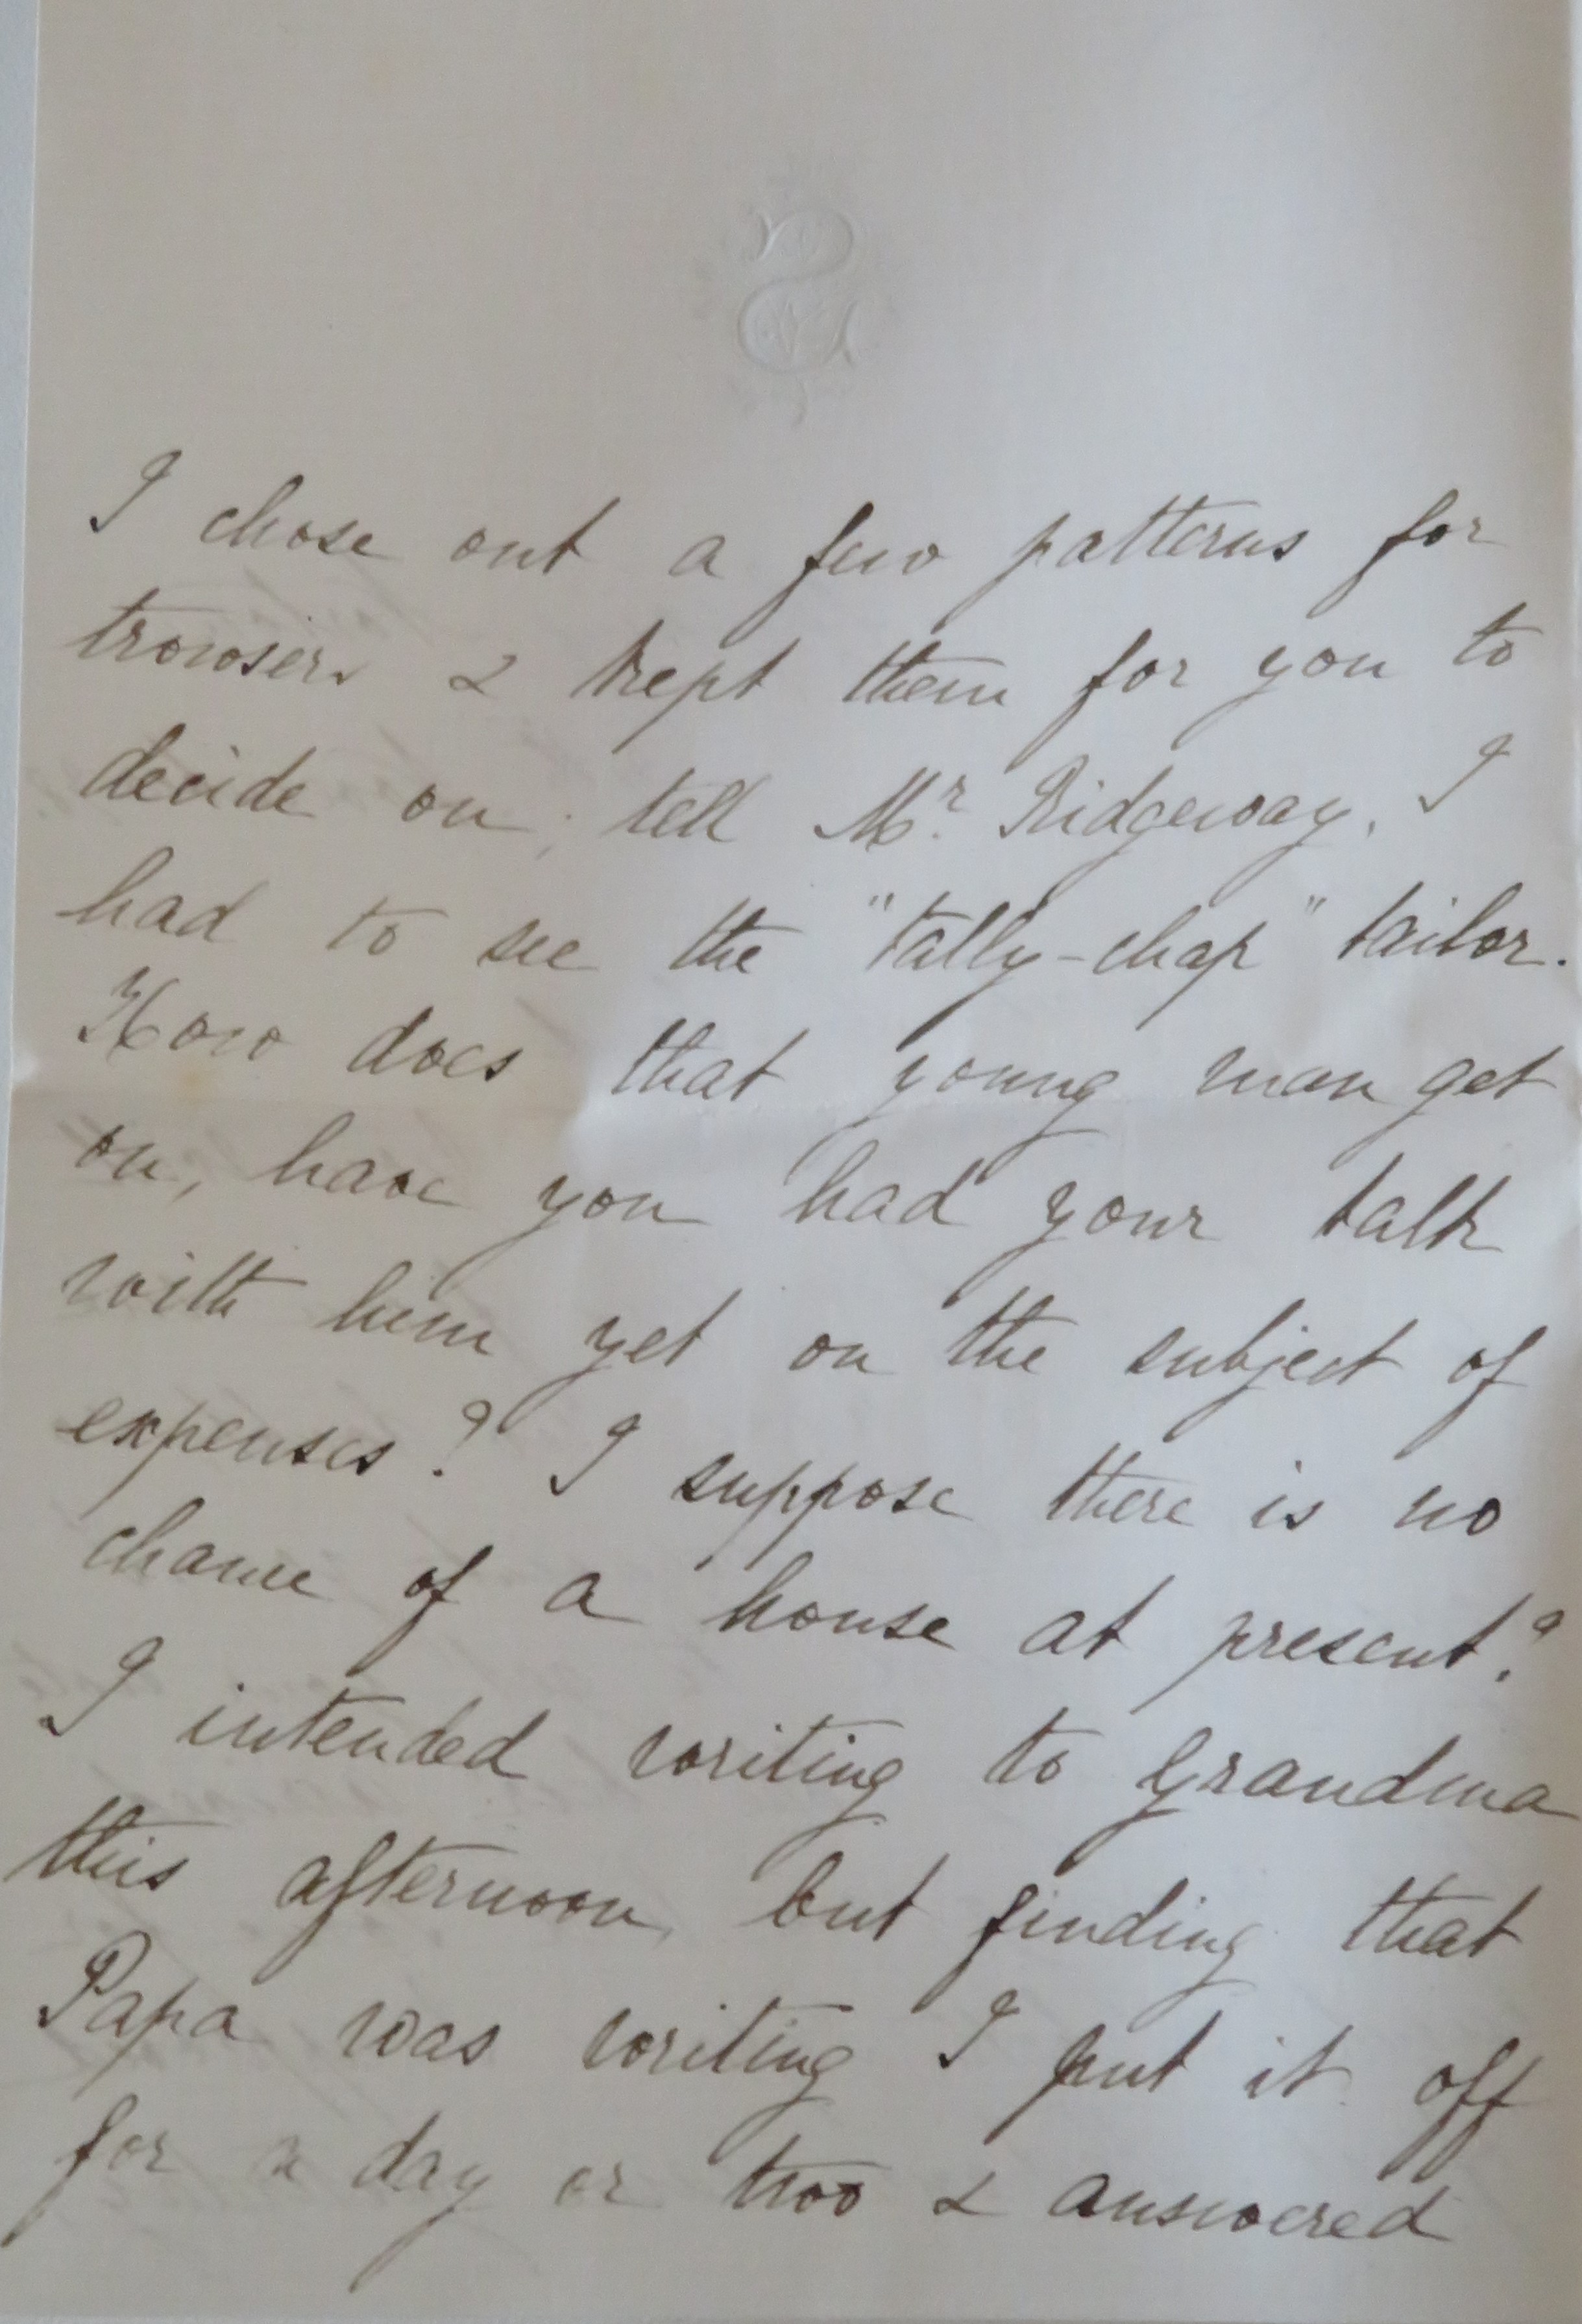 I chose out a few patterns for
trowsers & kept them for you to
decide on; tell Mr. Ridgeway, I
had to see the "tally-chap" tailor.
How does that young man get
on, have you had your talk
with him yet on the subject of
expenses? I suppose there is no
chance of a house at present?
I intended writing to Grandma
this afternoon, but finding that
Papa was writing I put it off
for a day or two & answered